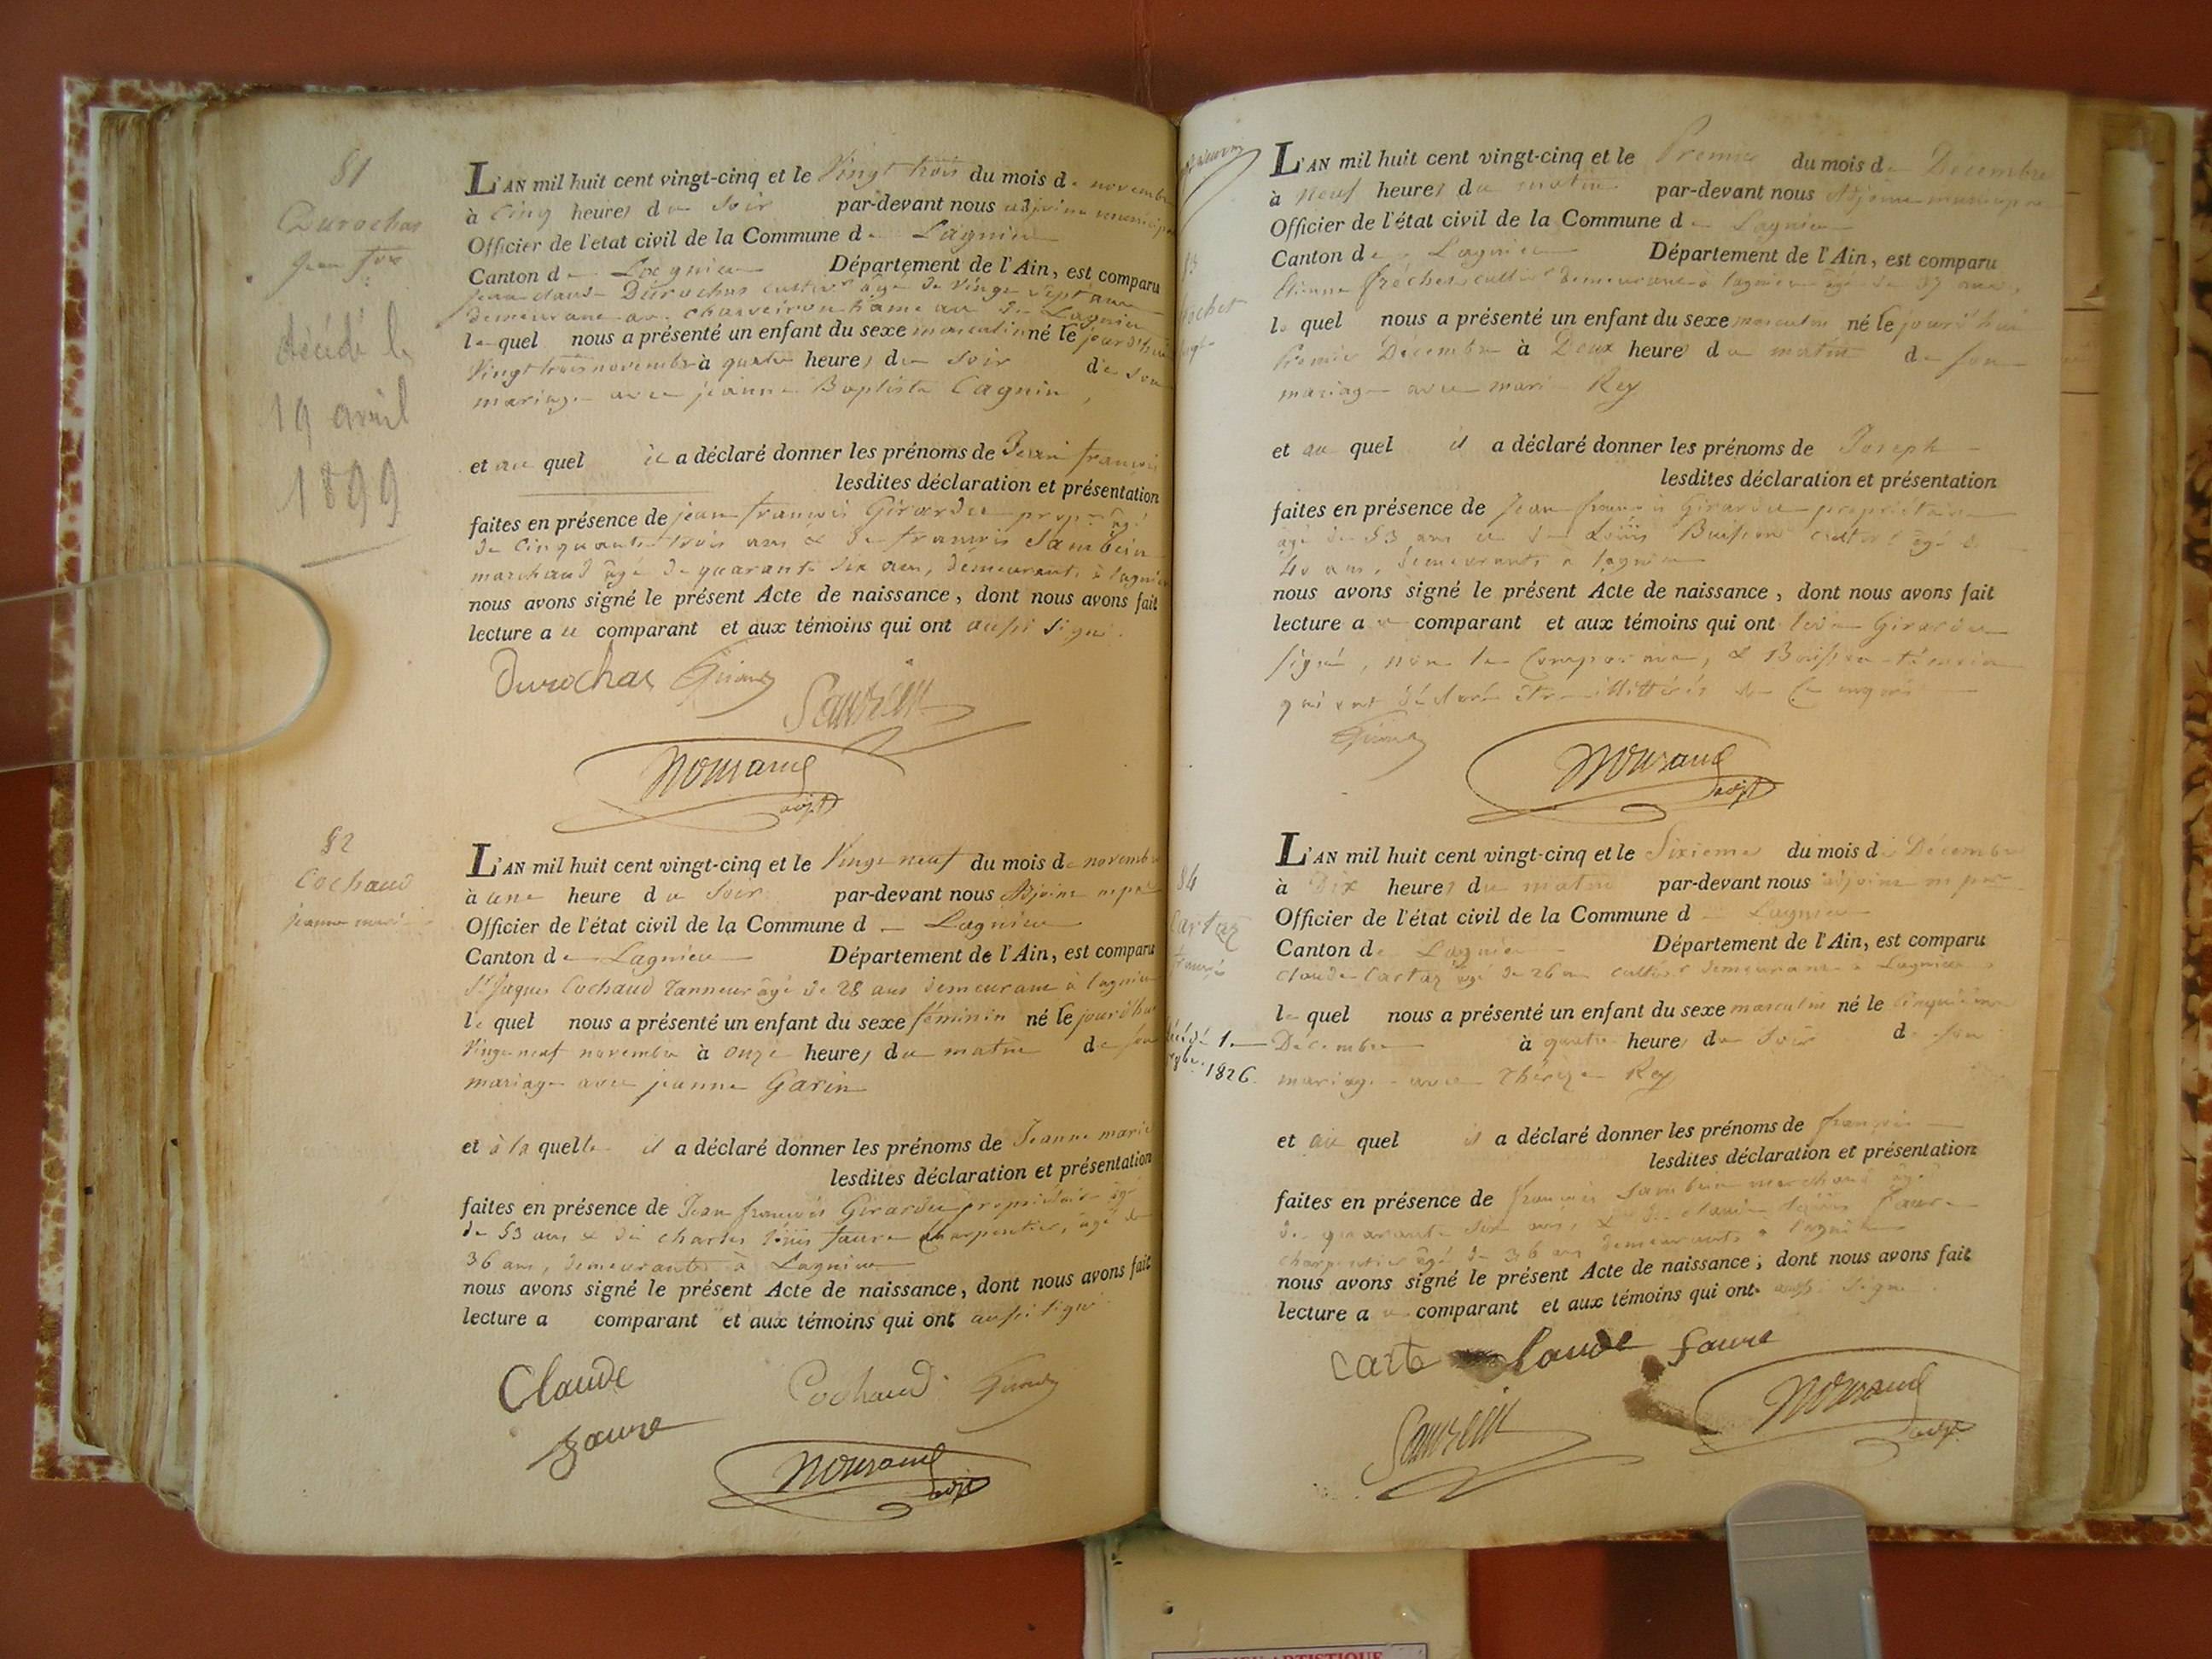 81
Durochat
Jean fois
décédé le
19 avril
1899
L'AN mil huit cent vingt-cinq et le Vingt trois du mois de novembre
à Cinq heures du soir par-devant nous adjoint municipal
Officier de l'etat civil de la Commune de Lagnieu
Canton de Lagnieu Département de l'Ain, est comparu
jean claude Durochat cultivr agé de vingt sept ans
demeurant au hameau de Lagnieu
le quel nous a présenté un enfant du sexe masculin né le jourd'hui
Vingt trois novembre à quatre heures du soir de son
mariage avec jeanne Baptiste Cagnin
et au quel il a déclaré donner les prénoms de Jean françois
lesdites déclaration et présentation
faites en présence de jean françois Girardu propre âgé
de cinquante trois ans & de françois Sambein
marchand âgé de quarante six ans, demeurants à lagnieu
nous avons signé le présent Acte de naissance, dont nous avons fait
lecture au comparant et aux témoins qui ont aussi signé.
Durochat
82
Cochaud
jeanne marie
L'AN mil huit cent vingt-cinq et le Vingt neuf du mois de novembre
à une heure du soir par-devant nous Adjoint mpal
Officier de l'état civil de la Commune de Lagnieu
Canton de Lagnieu Département de l'Ain, est comparu
Sr Jaques Cochaud Tanneur âgé de 28 ans demeurant à lagnieu
le quel nous a présenté un enfant du sexe féminin né le jourd'hui
Vingt neuf novembre à onze heures du matin de son
mariage avec jeanne Garin
et à la quelle il a déclaré donner les prénoms de Jeanne marie
lesdites déclaration et présentation
faites en présence de Jean françois Girardu propriétaire âgé
de 53 ans & de charles louis faure charpentier, âgé de
36 ans, demeurants à Lagnieu
nous avons signé le présent Acte de naissance, dont nous avons fait
lecture a comparant et aux témoins qui ont aussi signé
Claude Cochaud
faure
adjt
L'AN mil huit cent vingt-cinq et le Premier du mois de Décembre
à neuf heures du matin par-devant nous Adjoint municipal
Officier de l'état civil de la Commune de Lagnieu
Canton de Lagnieu Département de l'Ain, est comparu
Etienne fréchet cultivr demeurant à lagnieu âgé de 37 ans,
le quel nous a présenté un enfant du sexe masculin né le jourd'hui
Premier Décembre à Deux heures du matin de son
mariage avec marie Rey
et au quel il a déclaré donner les prénoms de Joseph
lesdites déclaration et présentation
faites en présence de Jean françois Girardu propriétaire
âgé de 53 ans et de Louis Buisson cultivr âgé de
40 ans, demeurants à lagnieu
nous avons signé le présent Acte de naissance, dont nous avons fait
lecture au comparant et aux témoins qui ont ledit Girardu
signé, non le comparant, & Buisson témoin
qui ont déclaré être illittérés de ce enquis
adjt
84
Cartaz
françois
décédé 1er
1826.
L'AN mil huit cent vingt-cinq et le Sixieme du mois de Décembre
à Dix heures du matin par-devant nous adjoint mpal
Officier de l'état civil de la Commune de Lagnieu
Canton de Lagnieu Département de l'Ain, est comparu
Claude Cartaz âgé de 26 ans cultivr demeurant à Lagnieu
le quel nous a présenté un enfant du sexe masculin né le cinquieme
Décembre à quatre heures du soir de son
mariage avec Thérèze Rey
et au quel il a déclaré donner les prénoms de françois
lesdites déclaration et présentation
faites en présence de françois Sambein marchand âgé
de quarante six ans, & de claude louis faure
charpentier âgé de 36 ans demeurants à lagnieu
nous avons signé le présent Acte de naissance; dont nous avons fait
lecture au comparant et aux témoins qui ont aussi signé
Claude faure
adjt
ARTISTIQUE